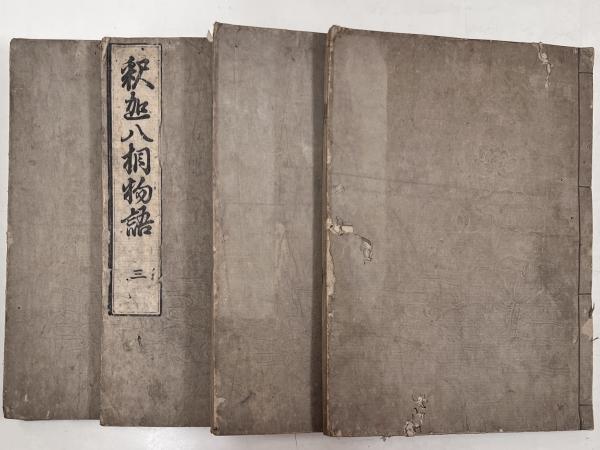 釈迦八相物語
三